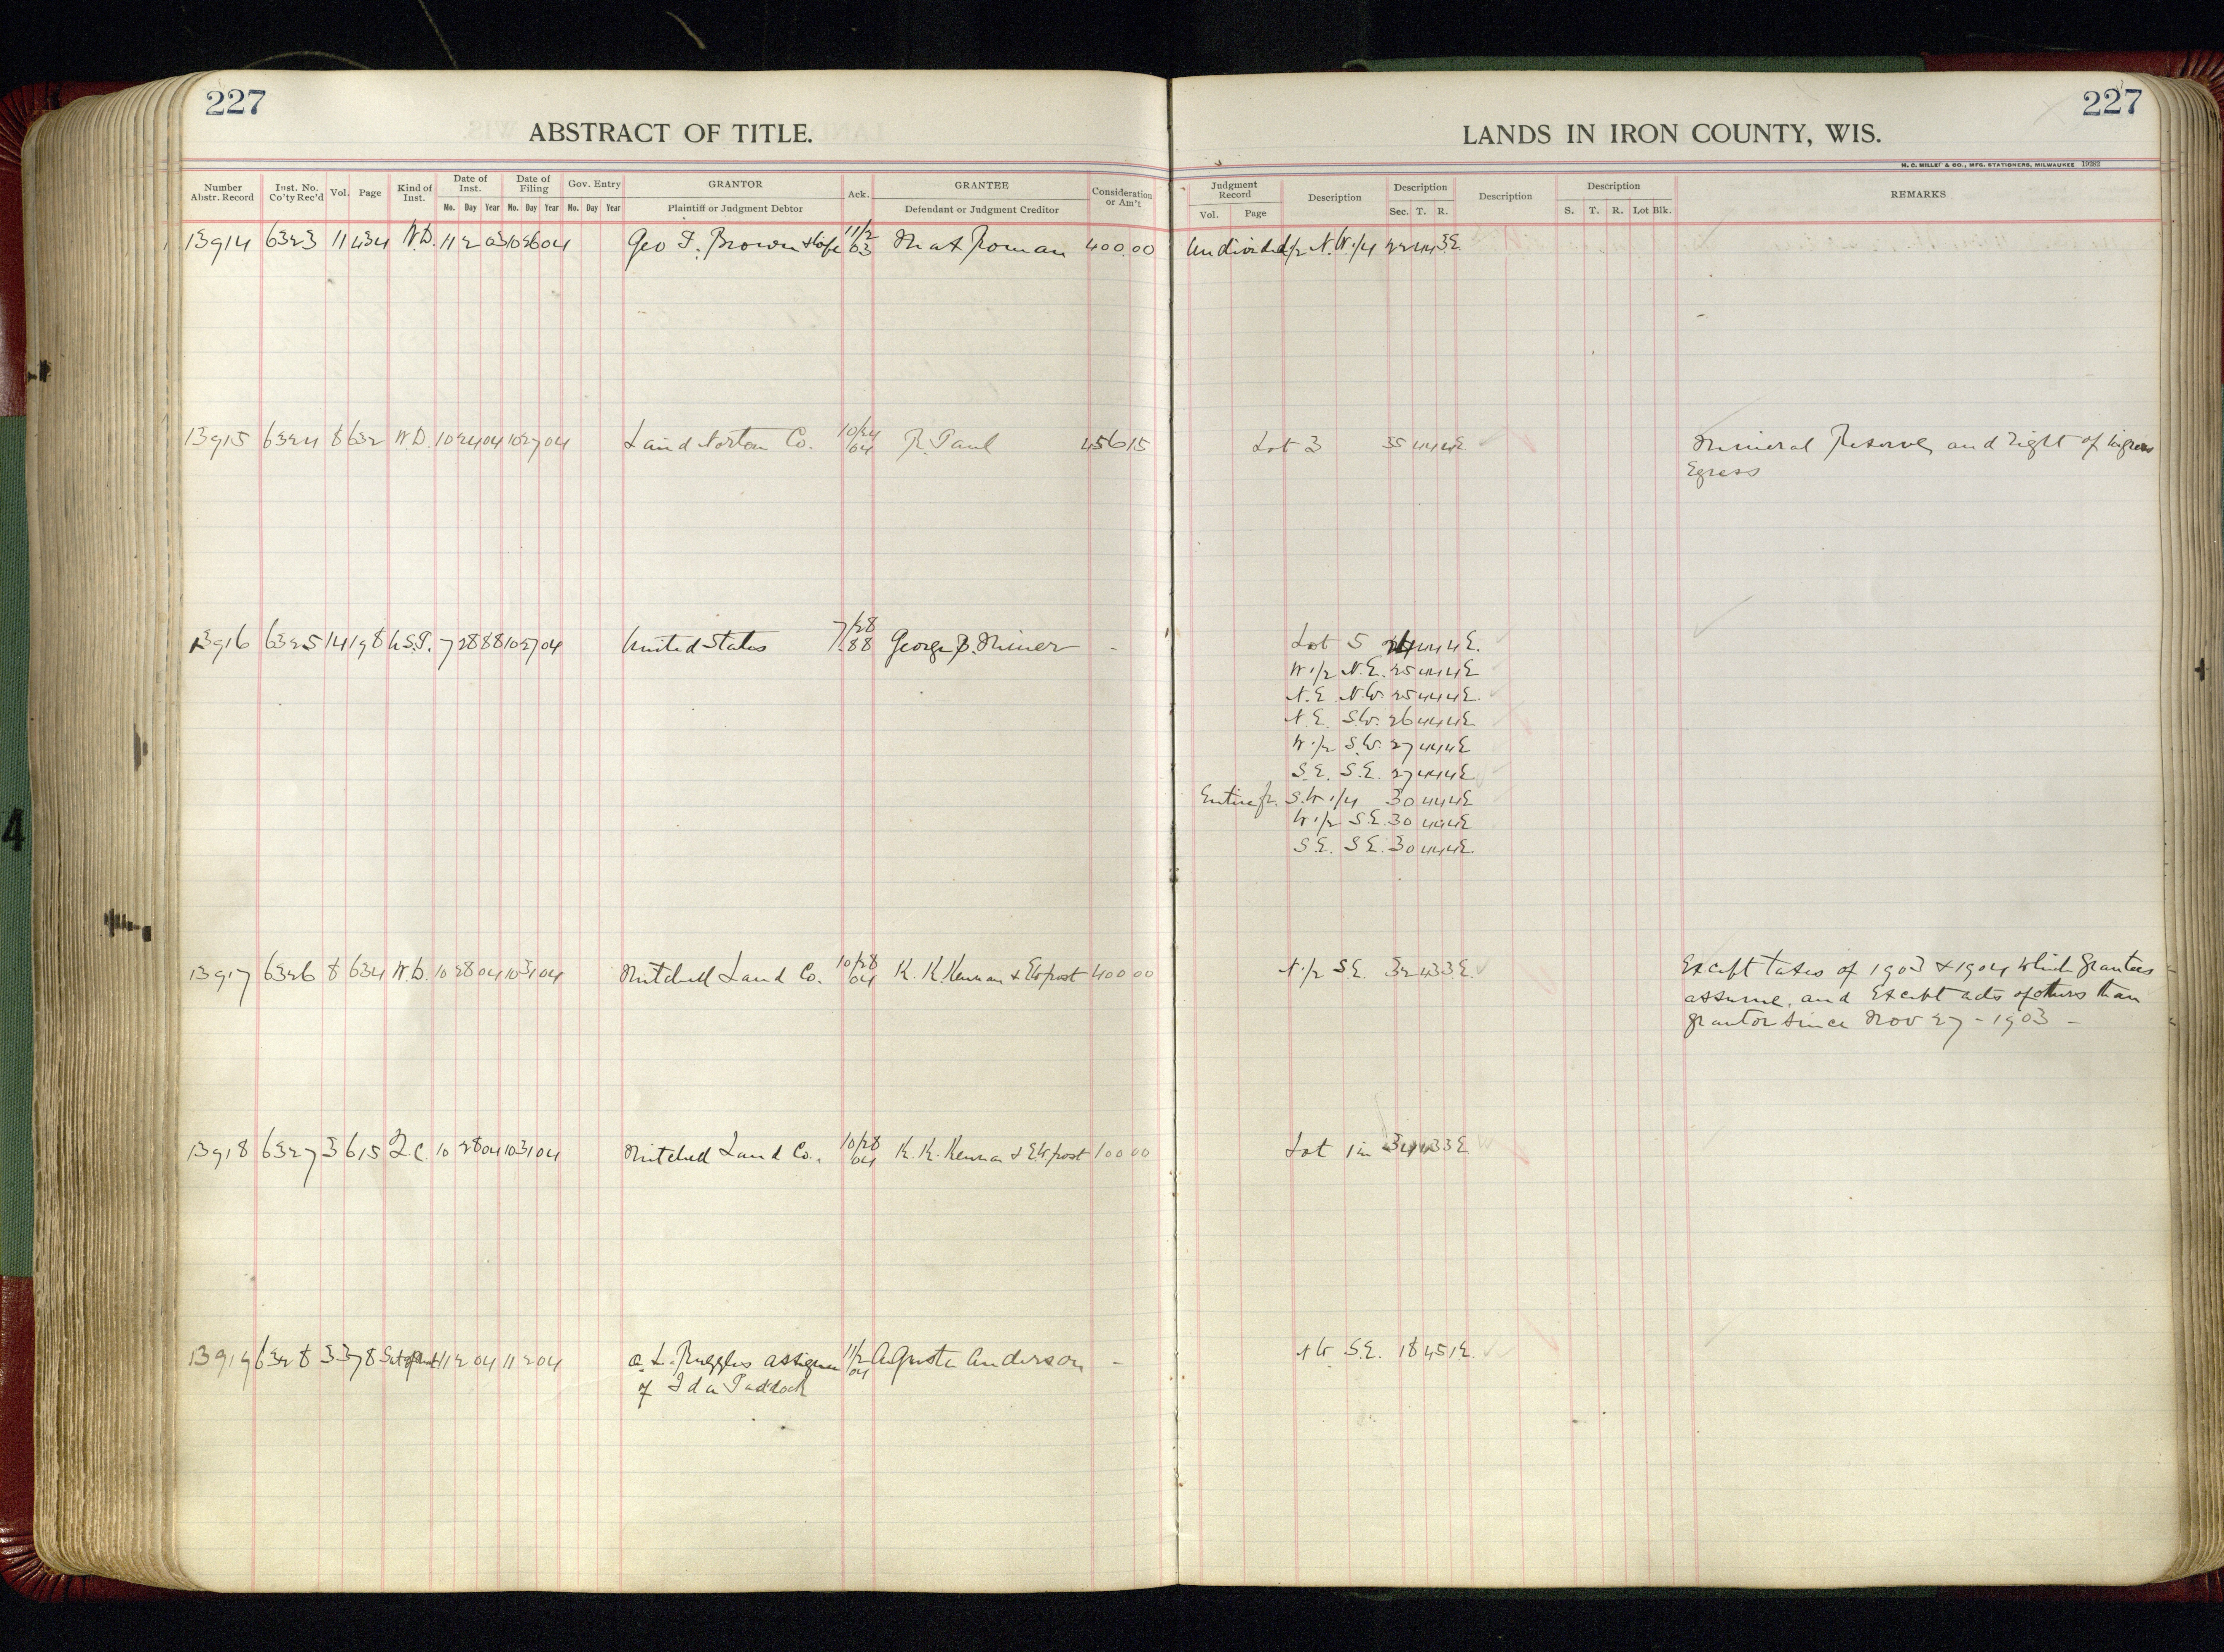 227
ABSTRACT OF TITLE.
Number Abstr. Record Inst. No. Co'ty Rec'd Vol. Page Kind of Inst. Date of Inst. Mo. Day Year Date of Filing Mo. Day Year Gov. Entry Mo. Day Year GRANTOR Plaintiff or Judgment Debtor Ack. GRANTEE Defendant or Judgment Creditor Consideration or Am't
227
LANDS IN IRON COUNTY, WIS.
H. C. MILLER & CO., MFG. STATIONERS, MILWAUKEE 19282
Judgment Record Vol. Page Description Description Sec. T. R. Description Description S. T. R. Lot Blk. REMARKS
13914 6323 11 434 W.D. 11 2 03 10 26 04 Geo F. Brown & wife 11/2 03 Mat Roman 400.00 Undivided 1/2 N.W. 1/4 22 44 3E
13915 6324 8 632 W.D. 10 24 04 10 27 04 Land Norton Co. 10/24 04 R. Paul 456 15 Lot 3 35 44 4E Mineral Reserve, and right of ingress
Egress
13916 6325 14 198 U.S.P. 7 28 88 10 27 04 United States 7/28 88 George P. Miner - Lot 5 24 44 4E.
W. 1/2 N.E. 25 44 4E
N.E. N.W. 25 44 4E.
N.E. S.W. 26 44 4E
W. 1/2 S.W. 27 44 4E
S.E. S.E. 27 44 4E
Entire fr. S.W 1/4 30 44 4E
W. 1/2 S.E. 30 44 4E
S.E. S.E. 30 44 4E
13917 6326 8 634 W.D. 10 28 04 10 31 04 Mitchell Land Co. 10/28 04 K. K. Kennan & EW frost 400 00 N. 1/2 S.E. 32 43 3E. Except taxes of 1903 & 1904 which grantees
assume, and Except acts of others than
grantor since Nov 27 - 1903 -
13918 6327 3 615 Q.C. 10 28 04 10 31 04 Mitchell Land Co. 10/28 04 K. K. Kennan & E.W frost 100 00 Lot 1 in 34 43 3E
13919 6328 3 378 11 2 04 11 2 04 A. L. Ruggles assignee 11/2 04 Agusta Anderson - NW. S.E. 18 45 1E.
of Ida Paddock
4